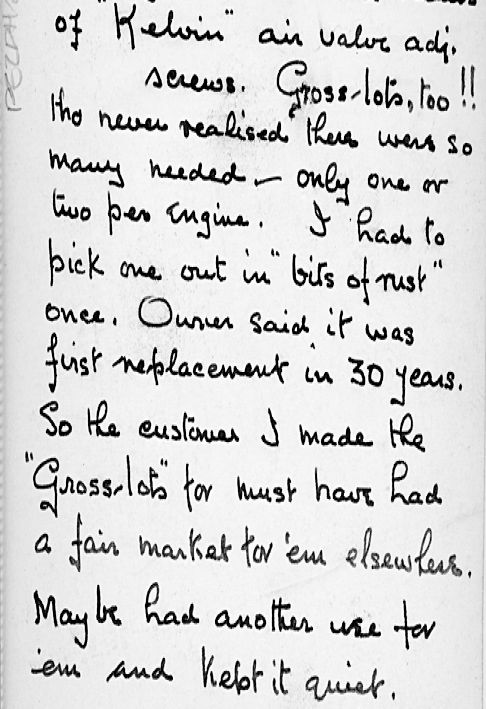 of "Kelvin" air valve adj.
screws. Gross-lots, too!!
tho never realised there were so
many needed - only one or
two per Engine. I had to
pick one out in "bits of rust"
once. Owner said it was
first replacement in 30 years.
So the customer I made the
"Gross-lots" for must have had
a fair market for 'em elsewhere.
Maybe had another use for
'em and kept it quiet.